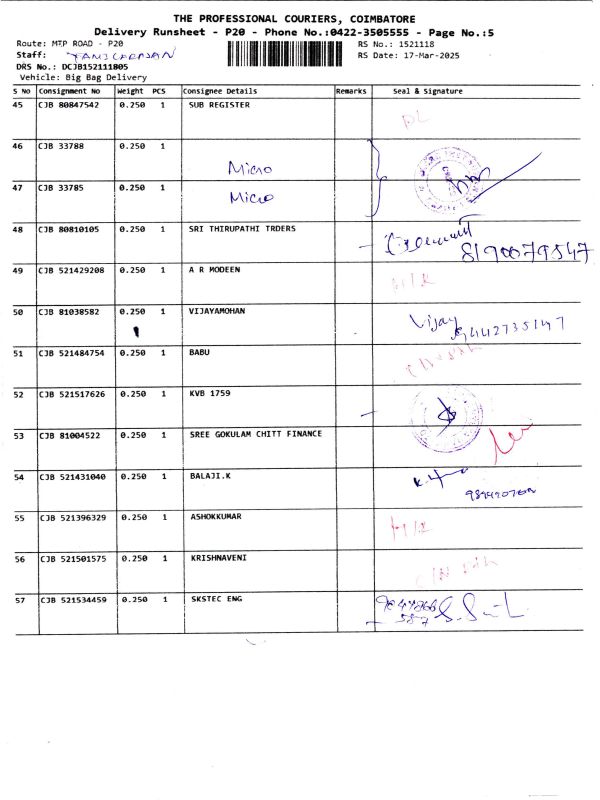 THE PROFESSIONAL COURIERS, COIMBATORE
Delivery Runsheet - P20 - Phone No.:0422-3505555 - Page No.:5
Route: MTP ROAD - P20 RS No.: 1521118
Staff: RS Date: 17-Mar-2025
DRS No.: DCJB152111805
Vehicle: Big Bag Delivery
S No Consignment No Weight PCS Consignee Details Remarks Seal & Signature
45 CJB 80847542 0.250 1 SUB REGISTER DL
46 CJB 33788 0.250 1 Micro
47 CJB 33785 0.250 1 Micro
48 CJB 80810105 0.250 1 SRI THIRUPATHI TRDERS 8190079547
49 CJB 521429208 0.250 1 A R MODEEN
50 CJB 81038582 0.250 1 VIJAYAMOHAN Vijay
9442735147
51 CJB 521484754 0.250 1 BABU
52 CJB 521517626 0.250 1 KVB 1759
53 CJB 81004522 0.250 1 SREE GOKULAM CHITT FINANCE
54 CJB 521431040 0.250 1 BALAJI.K
55 CJB 521396329 0.250 1 ASHOKKUMAR
56 CJB 521501575 0.250 1 KRISHNAVENI
57 CJB 521534459 0.250 1 SKSTEC ENG